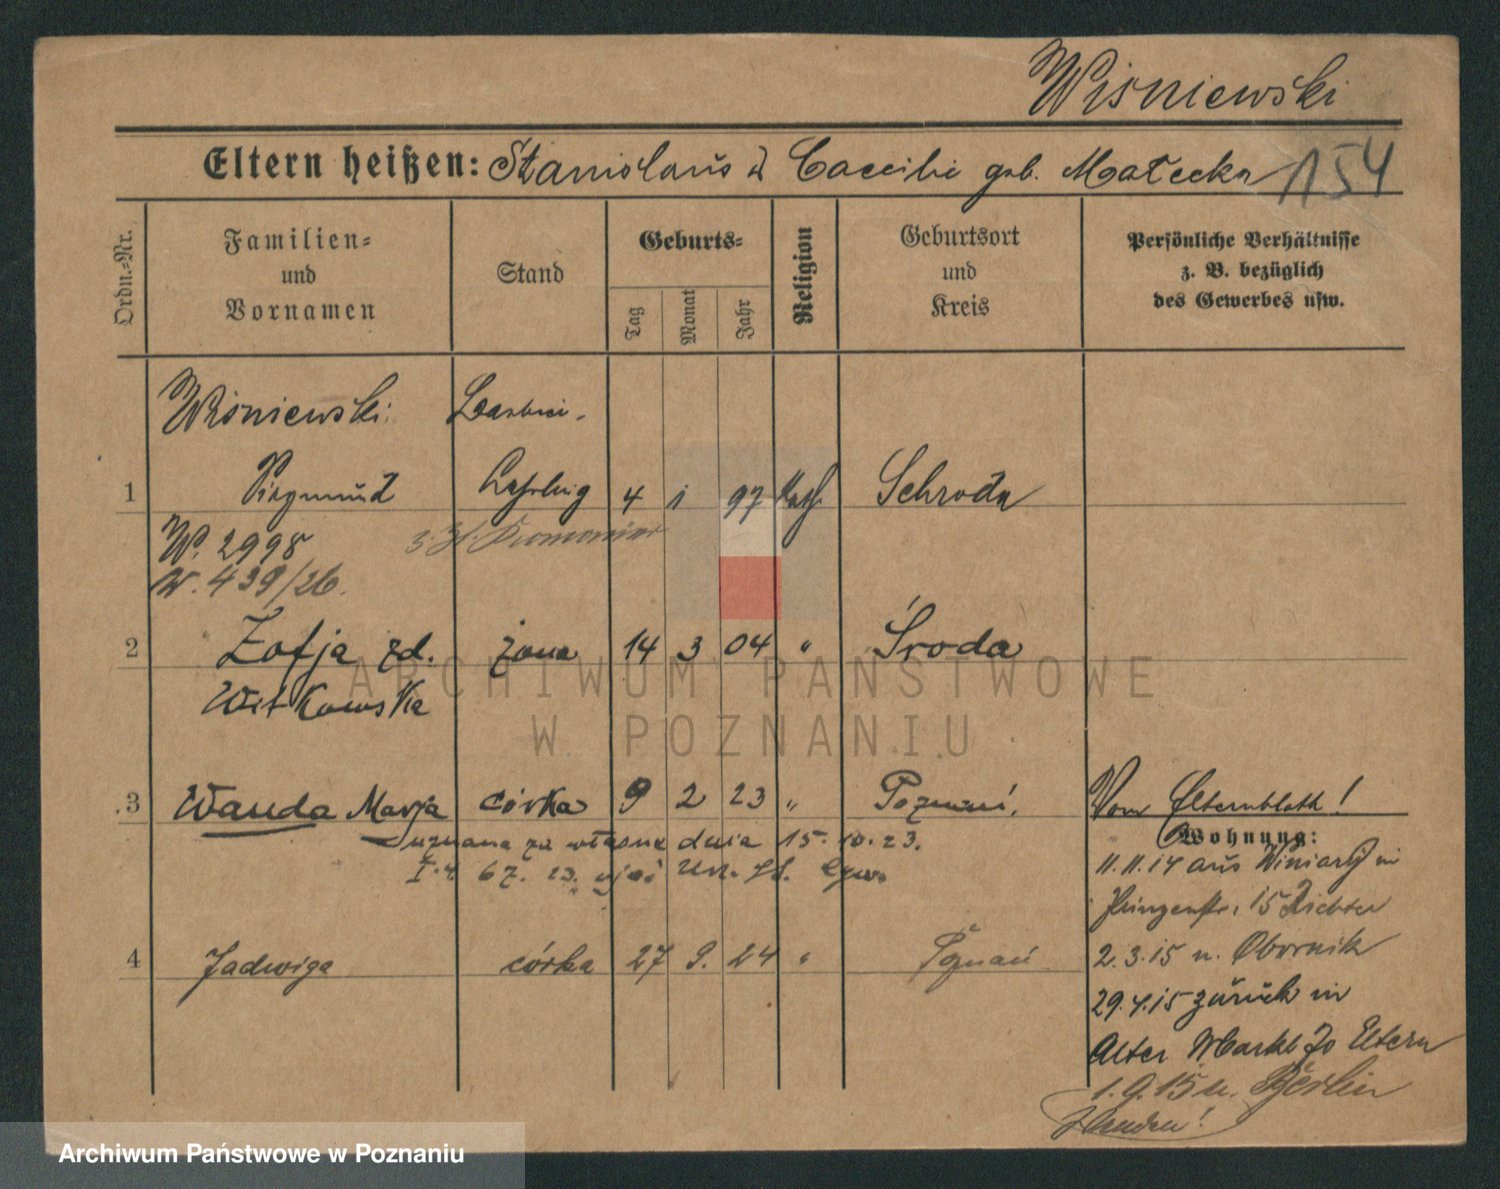 Wiśniewski
Eltern heißen: Stanislaus & Caecilie geb. Małecka 154
Ordn.-Nr.
Familien-
und
Vornamen
Stand
Geburts-
Tag
Monat
Jahr
Religion
Geburtsort
und
Kreis
Persönliche Verhältnisse
z. B. bezüglich
des Gewerbes usw.
Wiśniewski Barbier-
1 Siegmund Lehrling 4 1 97 Kath Schroda
W. 2998 z. Zt.
W. 439/26.
2 Zofja zd. żona 14 3 04 " Środa
Witkowska
3 Wanda Marja córka 9 2 23 " Poznań.
uznana za własne dnia 15.10.23.
67. 23.
4 Jadwiga córka 27 9. 24 " Poznań
Vom Elternblatt!
Wohnung:
11.11.14 aus Winiary in
Prinzenstr. 15 Richter
2.3.15 n. Obornik
29.4.15 zurück in
Alter Markt 70 Eltern
1.9.15 n. Berlin
ARCHIWUM PAŃSTWOWE
W POZNANIU
Archiwum Państwowe w Poznaniu